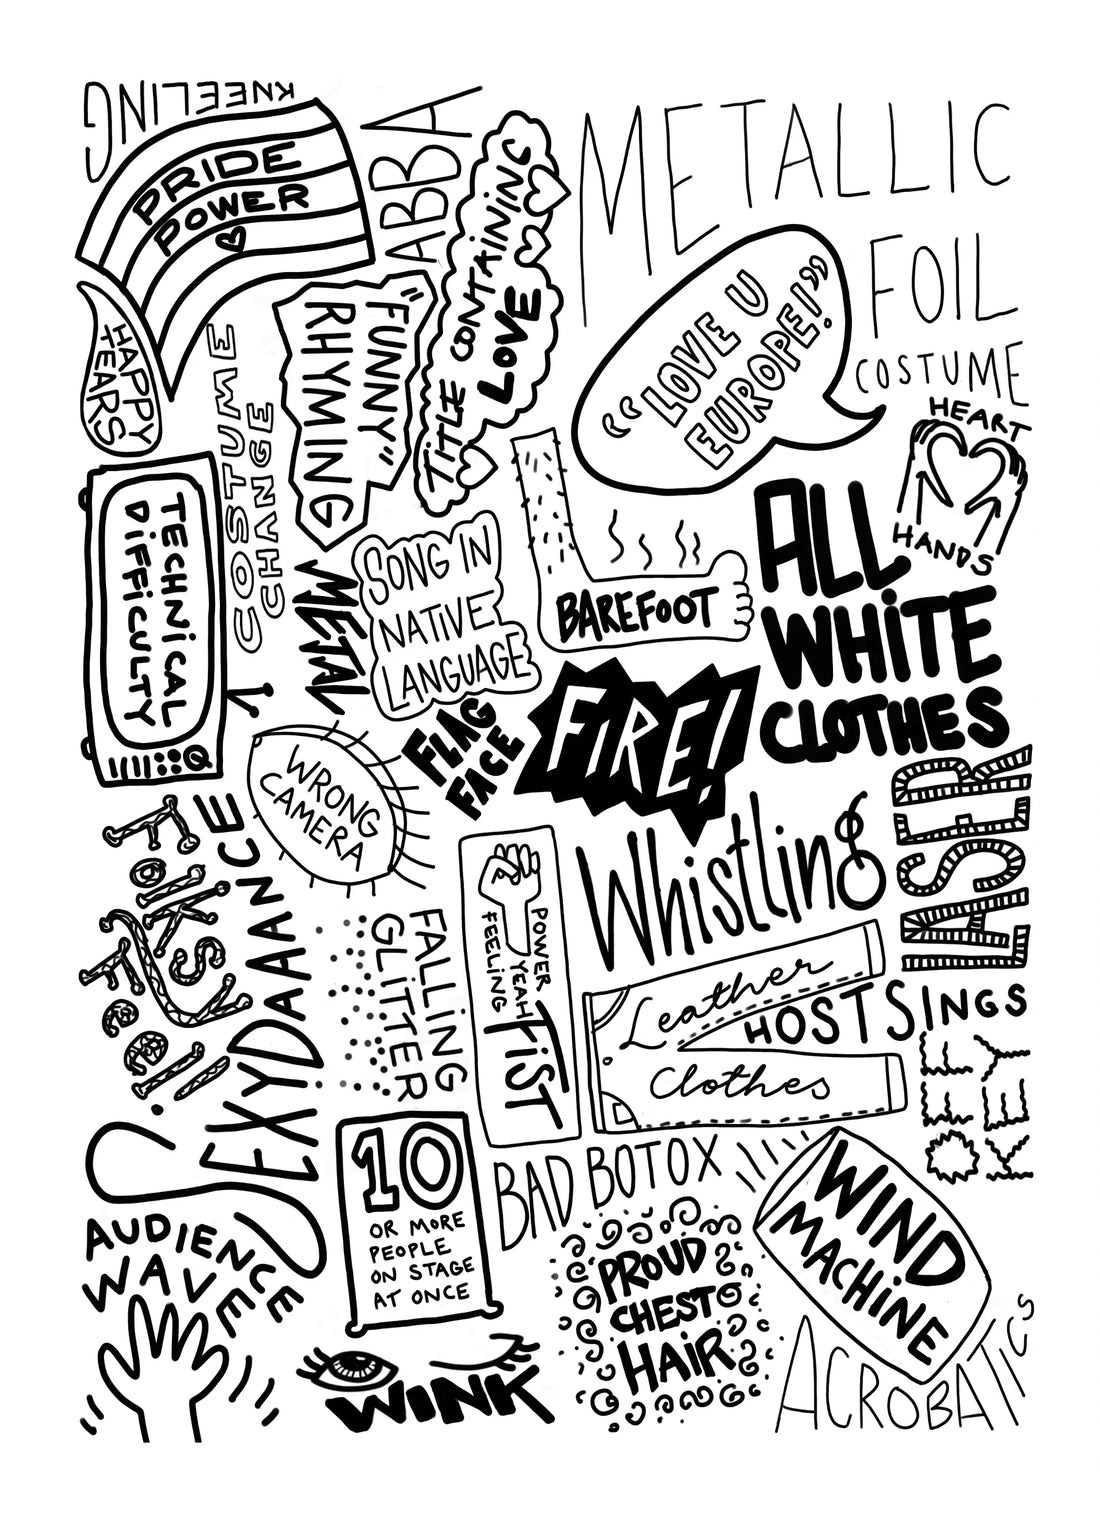 KNEELING
PRIDE
POWER
ABBA
TITLE CONTAINING
LOVE
METALLIC
FOIL
COSTUME
"LOVE U
EUROPE!"
HAPPY
TEARS
COSTUME
CHANGE
"FUNNY"
RHYMING
HEART
HANDS
TECHNICAL
DIFFICULTY
METAL
SONG IN
NATIVE
LANGUAGE
BAREFOOT
ALL
WHITE
CLOTHES
FLAG
FACE
FIRE!
WRONG
CAMERA
Whistling
LASER
Folksy
Feel!
SEXYDAANCE
FALLING
GLITTER
POWER
FEELING
YEAH
FIST
Leather
Clothes
HOST SINGS
OFF
KEY
10
OR MORE
PEOPLE
ON STAGE
AT ONCE
BAD BOTOX
WIND
MACHINE
AUDIENCE
WAVE
PROUD
CHEST
HAIR
WINK
ACROBATICS